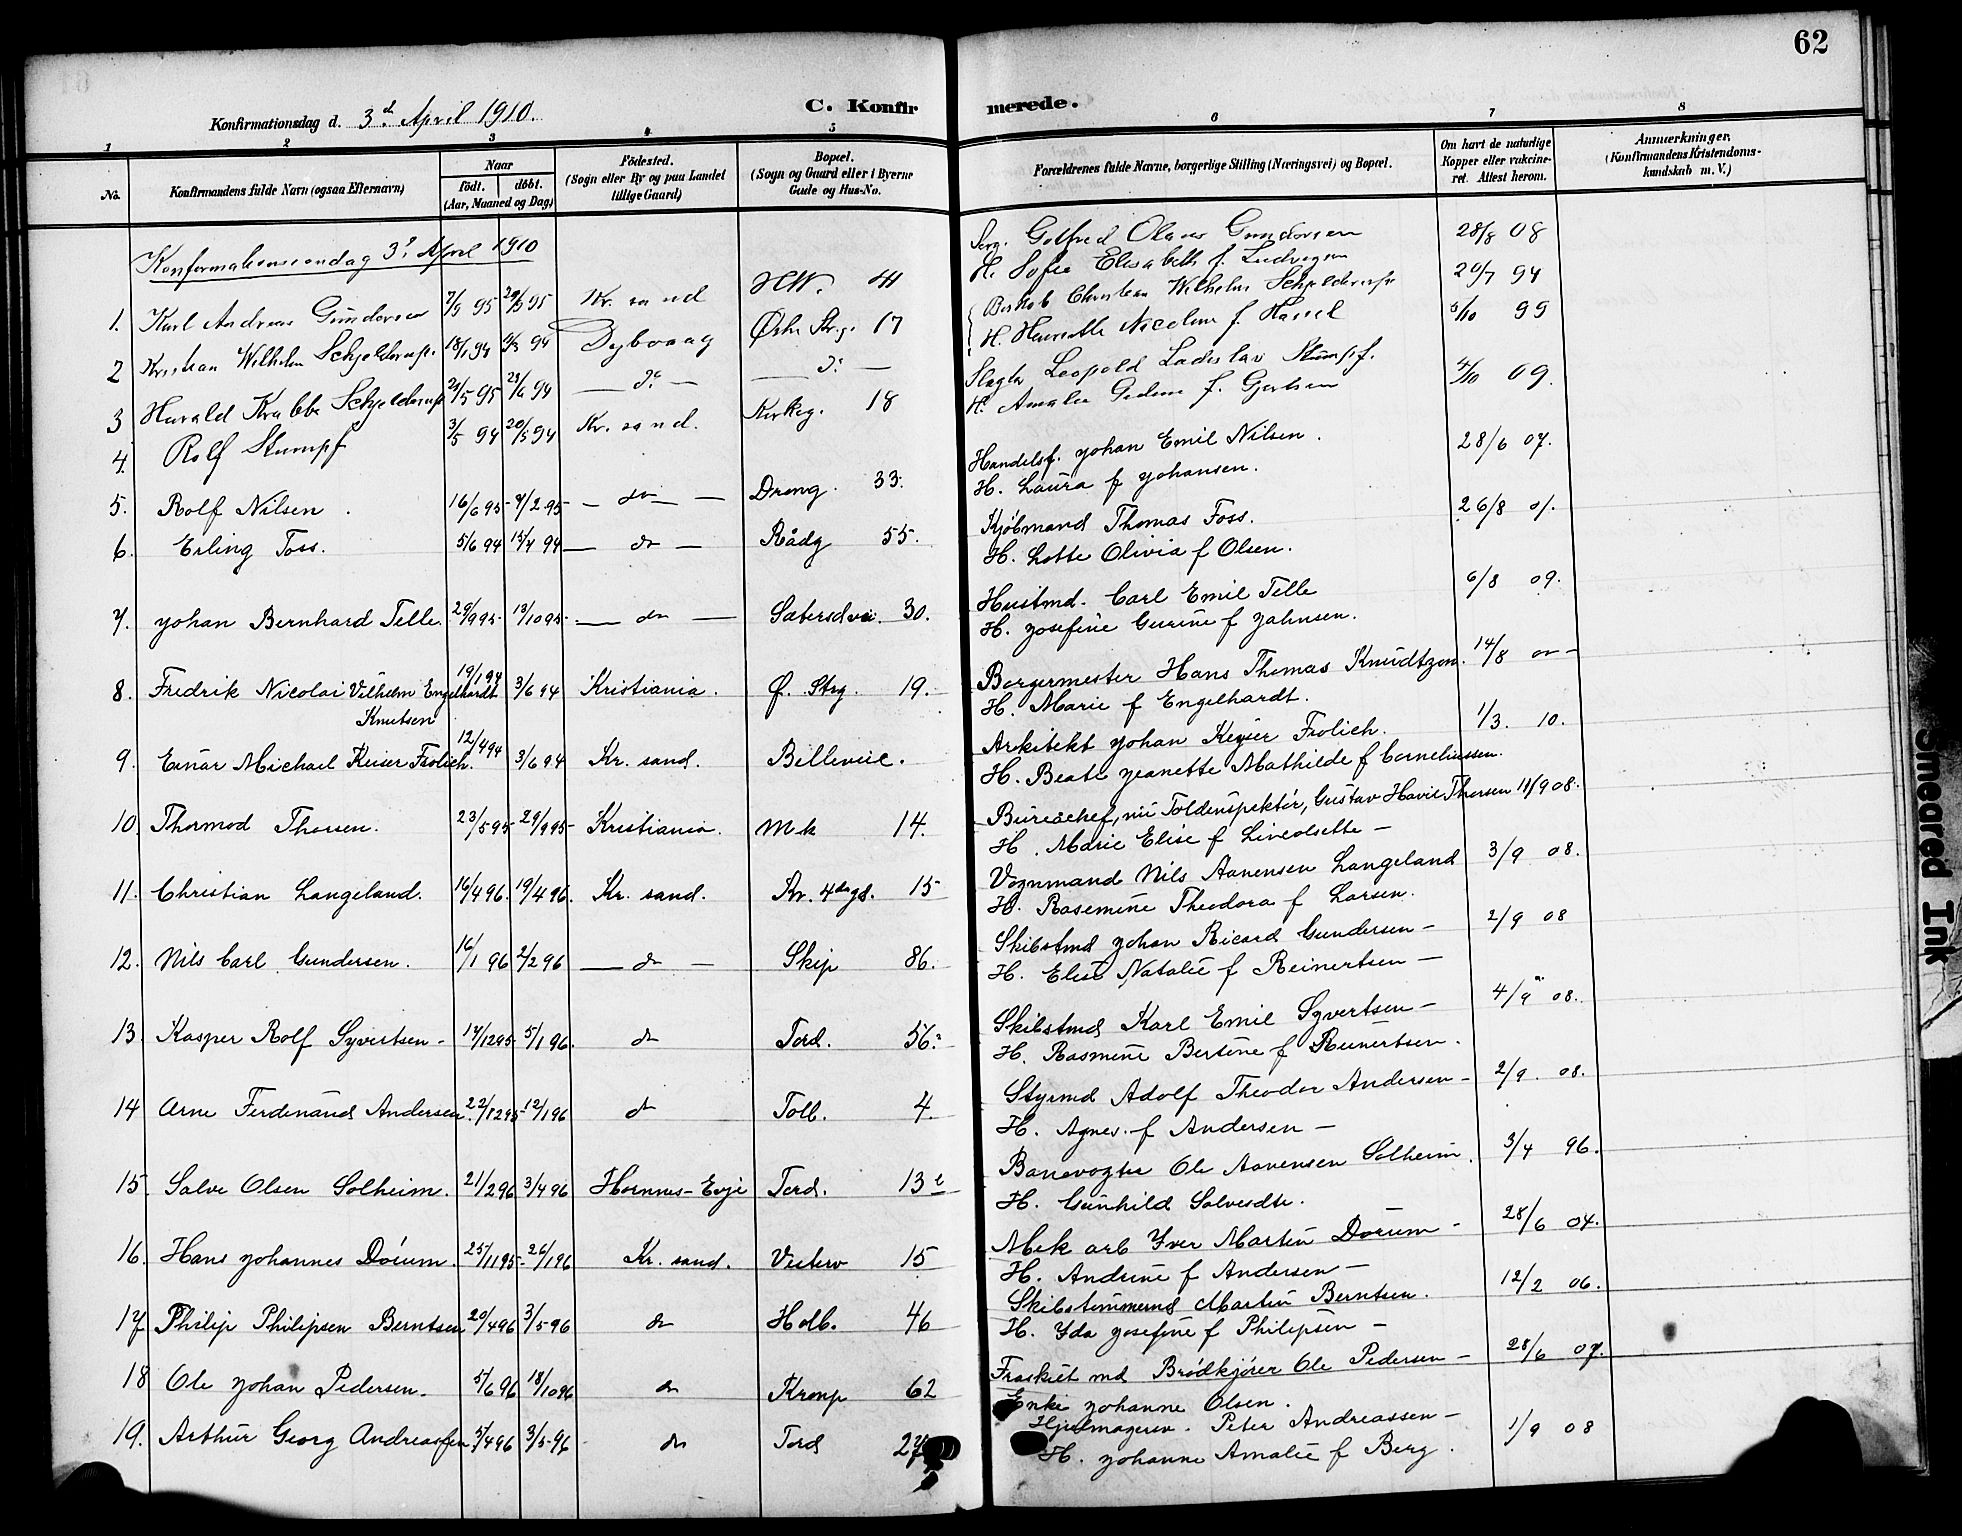 62
Konfirmationsdag d. 3d April 1910.
C. Konfirmerede.
1 2 3 4 5 6 7 8
No.
Konfirmandens fulde Navn (ogsaa Efternavn)
Naar
født. døbt.
(Aar, Maaned og Dag)
Födested.
(Sogn eller By og paa Landet
tillige Gaard)
Bopæl.
(Sogn og Gaard eller i Byerne
Gade og Hus-No.
Forældrenes fulde Navne, borgerlige Stilling (Næringsvei) og Bopæl.
Om havt de naturlige
Kopper eller vakcine-
ret. Attest herom.
Anmærkninger,
(Konfirmandens Kristendoms-
kundskab m. V.)
Konfirmationssøndag 3d April 1910
1. Karl Andreas Gundersen 95 95 Kr. sand H.W. 41
Gotfred Olaus Gundersen 28/8 08
H. Sofie Elisabeth f. Ludvigsen
2 Kristian Wilhelm Schjelderup. 18/1 94 94 Dybvaag Østr Str.g. 17
Biskop Christian Wilhelm Schjelderup 20/7 94
H. Henriette Nicoline f. Hassel
3 Harald Krabbe Schjelderup 95 94 — do — — do —
/10 99
4. Rolf Stumpf 3/5 94 20/5 94 Kr. sand. Kirkeg. 18
Slagter Leopold Ladislav Stumpf. 4/10 09.
H. Amalie f. Gjertsen
5. Rolf Nilsen. 95 95 — do — Drong. 33.
Handelsf. Johan Emil Nilsen. 28/6 07.
H. Laura f Johansen.
6. Erling Foss. 5/6 94 94 — do — Rådg 55.
Kjöbmand Thomas Foss. 26/8 01.
H. Lotte Olivia f Olsen.
7. Johan Bernhard Telle. 29/9 95 13/10 95 — do — Sætersdvei. 30.
Hustmd. Carl Emil Telle 6/8 09.
H. Josefine Gurine f Jahnsen.
8. Fredrik Nicolai Vilhelm Engelhardt 19/1 94 3/6 94 Kristiania. Ø. Strg. 19.
Knutsen
Borgermester Hans Thomas Knudtzon. 14/8
H. Marie f Engelhardt.
9. Einar Michael Keiser Frolich. 12/4 94 3/6 94 Kr. sand. Billeveie.
Arkitekt Johan Keyser Frolich. 1/3. 10.
H. Beate Jeanette Mathilde f Corneliussen.
10. Thormod Thorsen. 23/5 95 29/9 95 Kristiania. Mk 14.
Büreachef, nu Toldinspektör, Gustav Thorsen 11/9 08.
H. Marie Elise f
11. Christian Langeland. 16/4 96. 19/4 96. Kr. sand. Kv. 4de gd. 15
Vognmand Nils Aanensen Langeland 3/9 08.
H. Rasemine Theodora f Larsen.
12. Nils Carl Gundersen. 16/1 96 2/2 96 — do — Skip 86.
Skibstmd Johan Ricard Gundersen — 2/9 08
H. Elise Natalie f Reinertsen —
13. Kasper Rolf Syvertsen — 17/12 95 5/1 96. do Tord. 56.
Skibstmd Karl Emil Syvertsen — 4/9 08.
H. Rasmine Bertine f Reinertsen.
14 Arne Ferdinand Andersen. 22/12 95 12/1 96 do Tolb. 4.
Styrmd Adolf Theodor Andersen — 2/9. 08.
H. Agnes. f Andersen —
15. Salve Olsen Solheim. 21/2 96 3/4 96 Hornnes-Evje Tord. 13
Banevogter Ole Aavensen Solheim. 3/4 96.
H. Gunhild Salvesdtr.
16. Hans Johannes Dorum. 25/11 95 26/1 96 Kr. sand. Vesterv 15
Mek arb Iver Martin Dorum — 28/6 04.
H. Andrine f Andersen —
17 Philip Philipsen Berntsen 20/4 96 3/5 96 do Holb. 46
Skibstömmermd Martin Berntsen. 12/2 06.
H. Ida Josefine f Philipsen —
18 Ole Johan Pedersen. 5/6 96 18/10 96 do Kronp 62
Fraskilt md Brödkjörer Ole Pedersen — 28/6 07.
Enke Johanne Olsen.
19. Arthur Georg Andreassen 5/4 96 3/5 96 do Tord
Hjulmagerev. Peter Andreassen — 1/9 08
H. Johanne Amalie f Berg.
Smeared Ink